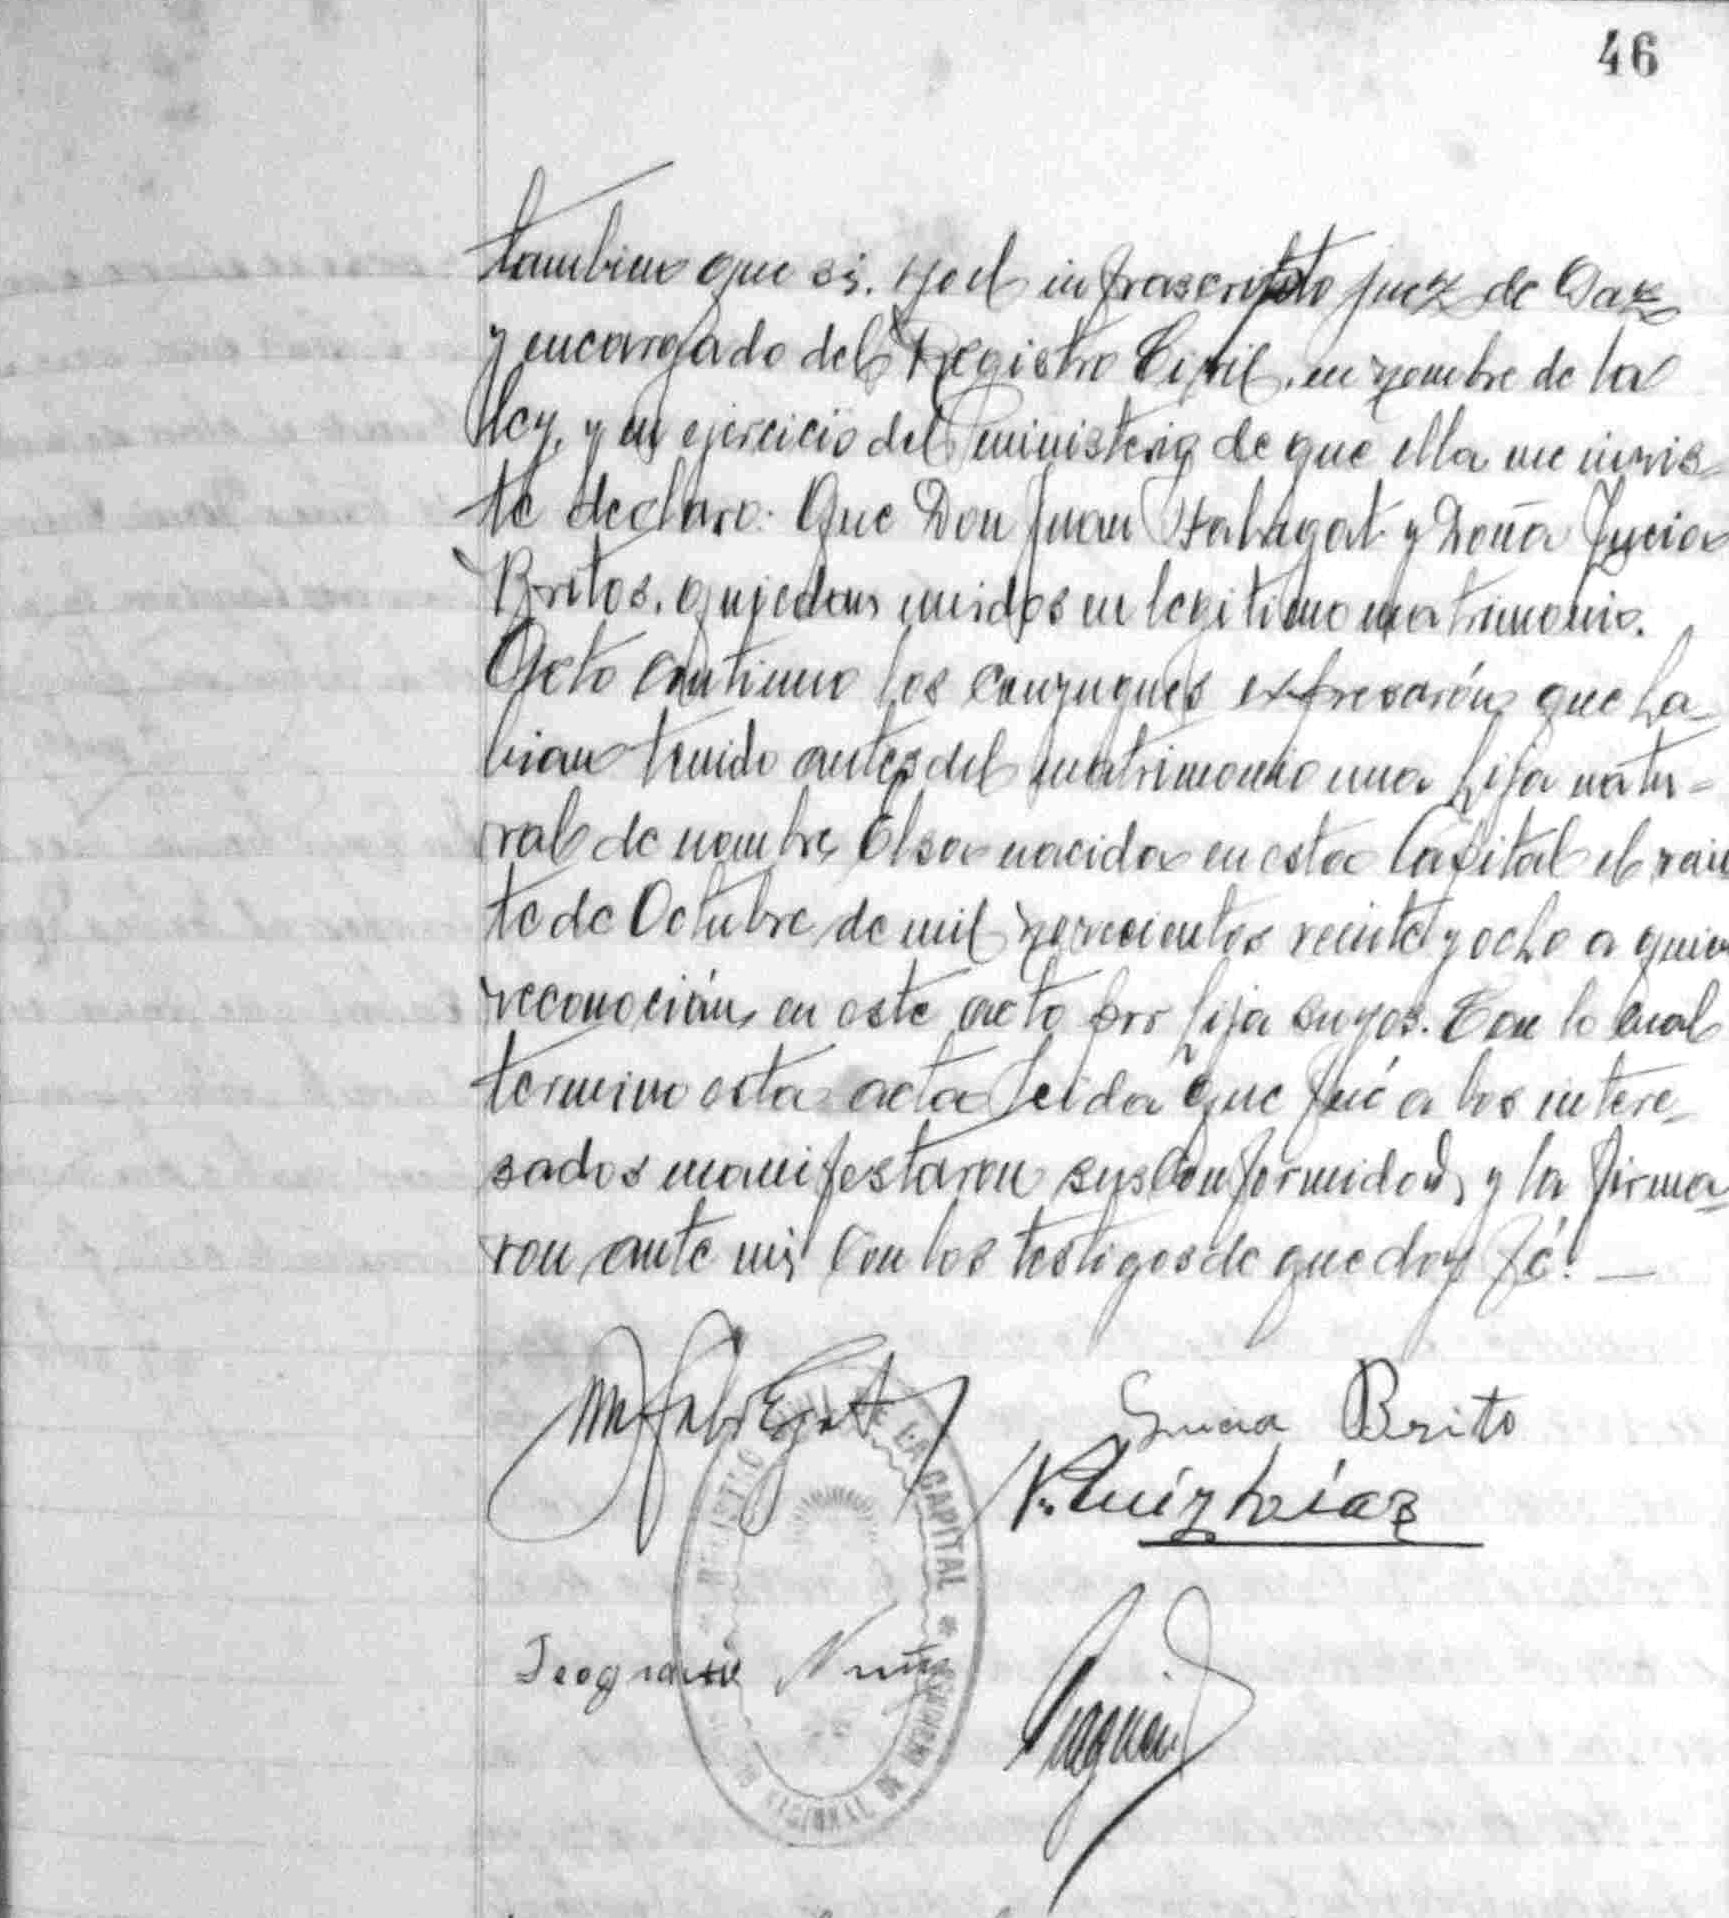 46
tambien que si. Yo el infrascripto juez de Paz
y encargado del Registro Civil, en nombre de la
ley, y en ejercicio del ministerio de que ella me invis-
te declaro: Que Don Juan y Doña Lucia
Britos, quedan unidos en legitimo matrimonio.
Acto continuo los conyugues expresarón que ha-
bian tenido antes del matrimonio una hija natu-
ral de nombre Elsa nacida en esta Capital el vein
te de Octubre de mil novecientos veinte y ocho a quien
reconocián en este acto por hija suyos. Con lo cual
termino esta acta leida que fué a los intere-
sados manifestaron sus conformidad y la firma-
ron ante mi con los testigos de que doy fé. —
Lucia Brito
Ruiz Diaz
REGISTRO CIVIL DE LA CAPITAL
Nuñez